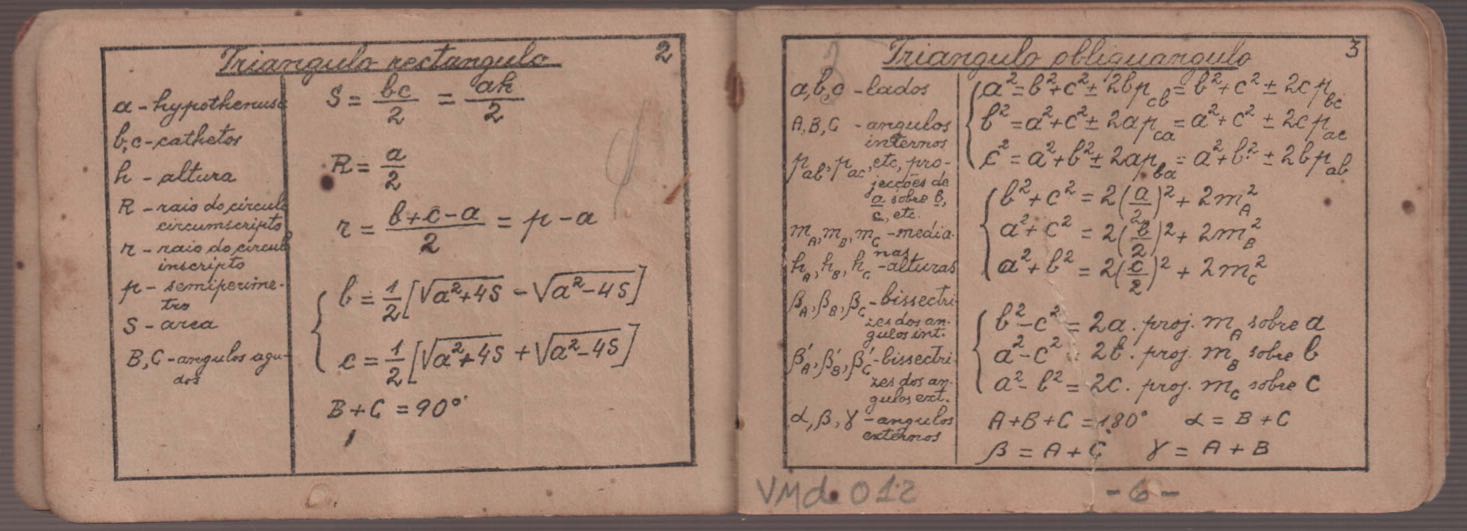 Triangulo rectangulo 2
a - hypothenusa
b, c - cathetos
h - altura
R - raio do circulo
circumscripto
r - raio do circulo
inscripto
p - semiperime-
tro
S - area
B, C - angulos agu-
dos
S = bc/2 = ah/2
R = a/2
r = (b + c - a)/2 = p - a
b = 1/2 [√(a²+4S) - √(a²-4S)]
c = 1/2 [√(a²+4S) + √(a²-4S)]
B + C = 90°
Triangulo obliquangulo 3
a, b, c - lados
A, B, C - angulos
internos
p_ab, p_ac, etc, pro-
jecções de
a sobre b,
c, etc.
m_A, m_B, m_C - media-
nas
h_A, h_B, h_C - alturas
β_A, β_B, β_C - bissectri-
zes dos an-
gulos int.
β'_A, β'_B, β'_C - bissectri-
zes dos an-
gulos ext.
α, β, γ - angulos
externos
a² = b² + c² ± 2bp_cb = b² + c² ± 2cp_bc
b² = a² + c² ± 2ap_ca = a² + c² ± 2cp_ac
c² = a² + b² ± 2ap_ba = a² + b² ± 2bp_ab
b² + c² = 2(a/2)² + 2m_A²
a² + c² = 2(b/2)² + 2m_B²
a² + b² = 2(c/2)² + 2m_C²
b² - c² = 2a. proj. m_A sobre a
a² - c² = 2b. proj. m_B sobre b
a² - b² = 2c. proj. m_C sobre c
A + B + C = 180° α = B + C
β = A + C γ = A + B
VMd. 012 - 6 -